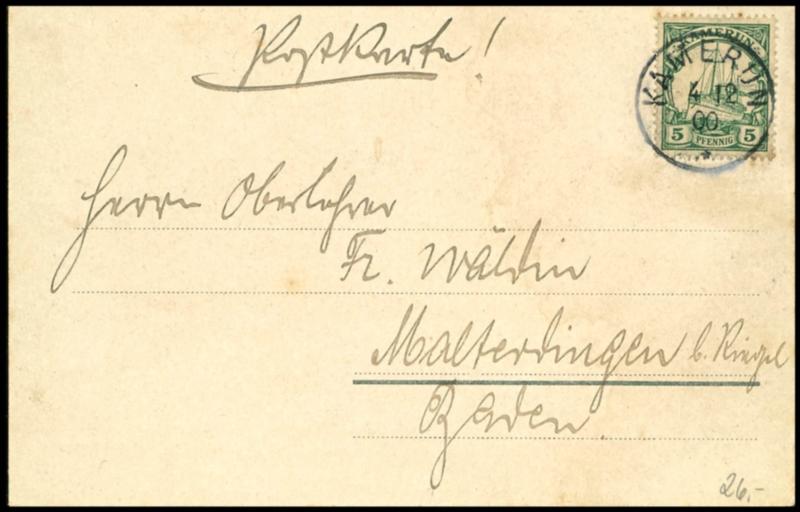 Postkarte!
KAMERUN
KAMERUN
4 12
00
*
5 PFENNIG 5
Herrn Oberlehrer
Fr. Wäldin
Malterdingen b. Riegel
Baden.
26,-